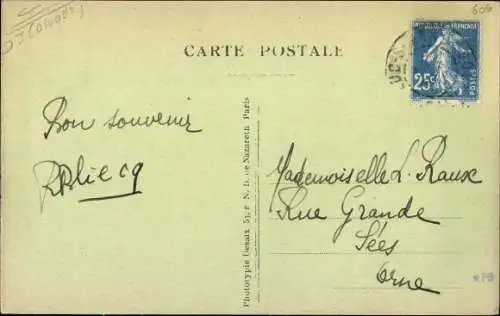 606
CARTE POSTALE
REPUBLIQUE FRANÇAISE
25c
POSTES
Bon souvenir
Photocypie Desaix 51, r. N. D. de Nazareth Paris
Mademoiselle L. Raux
Rue Grande
Sées
Orne